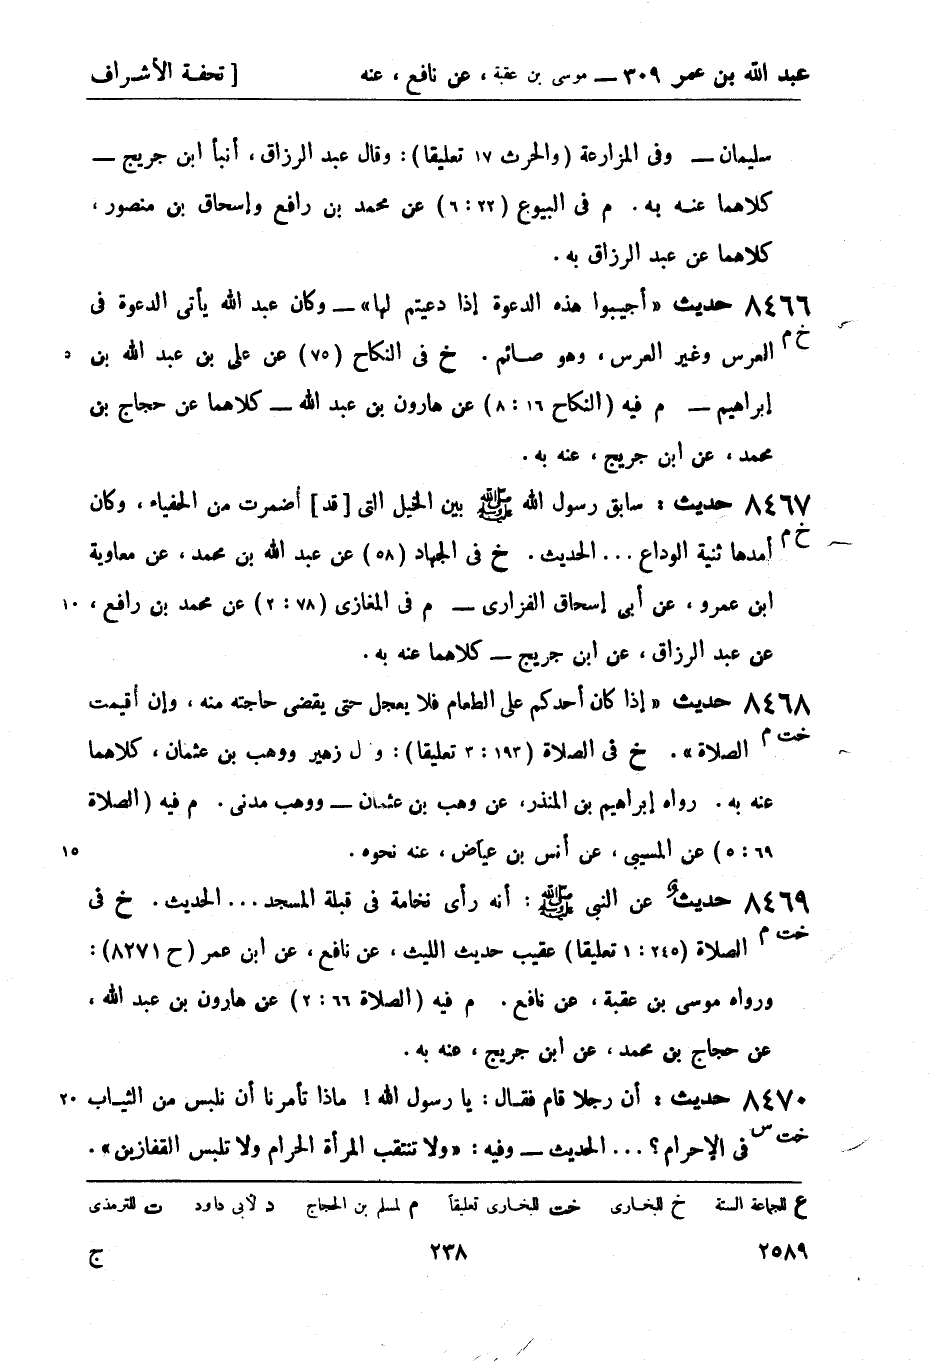 عبد الله بن عمر ٣٠٩ ــ موسى بن عقبة ، عن نافع ، عنه [ تحفة الأشراف
سليمان ــ وفى المزارعة (والحرث ١٧ تعليقا) : وقال عبد الرزاق ، أنبأ ابن جريج ــ
كلاهما عنـه به . م فى البيوع (٢٢ : ٦) عن محمد بن رافع وإسحاق بن منصور ،
كلاهما عن عبد الرزاق به .
٨٤٦٦ حديث « أجيبوا هذه الدعوة إذا دعيتم لها» ــ وكان عبد الله يأتى الدعوة فى
خ م العرس وغير العرس ، وهو صـائم . خ فى النكاح (٧٥) عن على بن عبد الله بن ٥
إبراهيم ــ م فيه (النكاح ١٦ : ٨) عن هارون بن عبد الله ــ كلاهما عن حجاج بن
محمد ، عن ابن جريج ، عنه به .
٨٤٦٧ حديث : سابق رسول الله ﷺ بين الخيل التى [قد] أضمرت من الحفياء ، وكان
خ م أمدها ثنية الوداع ... الحديث . خ فى الجهاد (٥٨) عن عبد الله بن محمد ، عن معاوية
ابن عمرو ، عن أبى إسحاق الفزارى ــ م فى المغازى (٧٨ : ٢) عن محمد بن رافع ، ١٠
عن عبد الرزاق ، عن ابن جريج ــ كلاهما عنه به .
٨٤٦٨ حديث « إذا كان أحدكم على الطعام فلا يعجل حتى يقضى حاجته منه ، وإن أقيمت
خت م الصلاة» . خ فى الصلاة (١٩٣ : ٣ تعليقا) : و ل زهير ووهب بن عثمان ، كلاهما
عنه به . رواه إبراهيم بن المنذر، عن وهب بن عثمان ــ ووهب مدنى . م فيه (الصلاة
٦٩ : ٥) عن المسيبى ، عن أنس بن عياض ، عنه نحوه . ١٥
٨٤٦٩ حديث عن النبى ﷺ : أنه رأى نخامة فى قبلة المسجد ... الحديث . خ فى
خت م الصلاة (٢٤٥ : ١ تعليقا) عقيب حديث الليث ، عن نافع ، عن ابن عمر (ح ٨٢٧١) :
ورواه موسى بن عقبة ، عن نافع . م فيه (الصلاة ٦٦ : ٢) عن هارون بن عبد الله ،
عن حجاج بن محمد ، عن ابن جريج ، عنه به .
٨٤٧٠ حديث : أن رجلا قام فقـال : يا رسول الله ! ماذا تأمرنا أن نلبس من الثيـاب ٢٠
خت س فى الإحرام ؟ ... الحديث ــ وفيه : «ولا تنتقب المرأة الحرام ولا تلبس القفازين» .
ع للجماعة الستة خ للبخارى خت للبخارى تعليقاً م لمسلم بن الحجاج د لأبى داود ت للترمذى
٢٥٨٩ ٢٣٨ ج